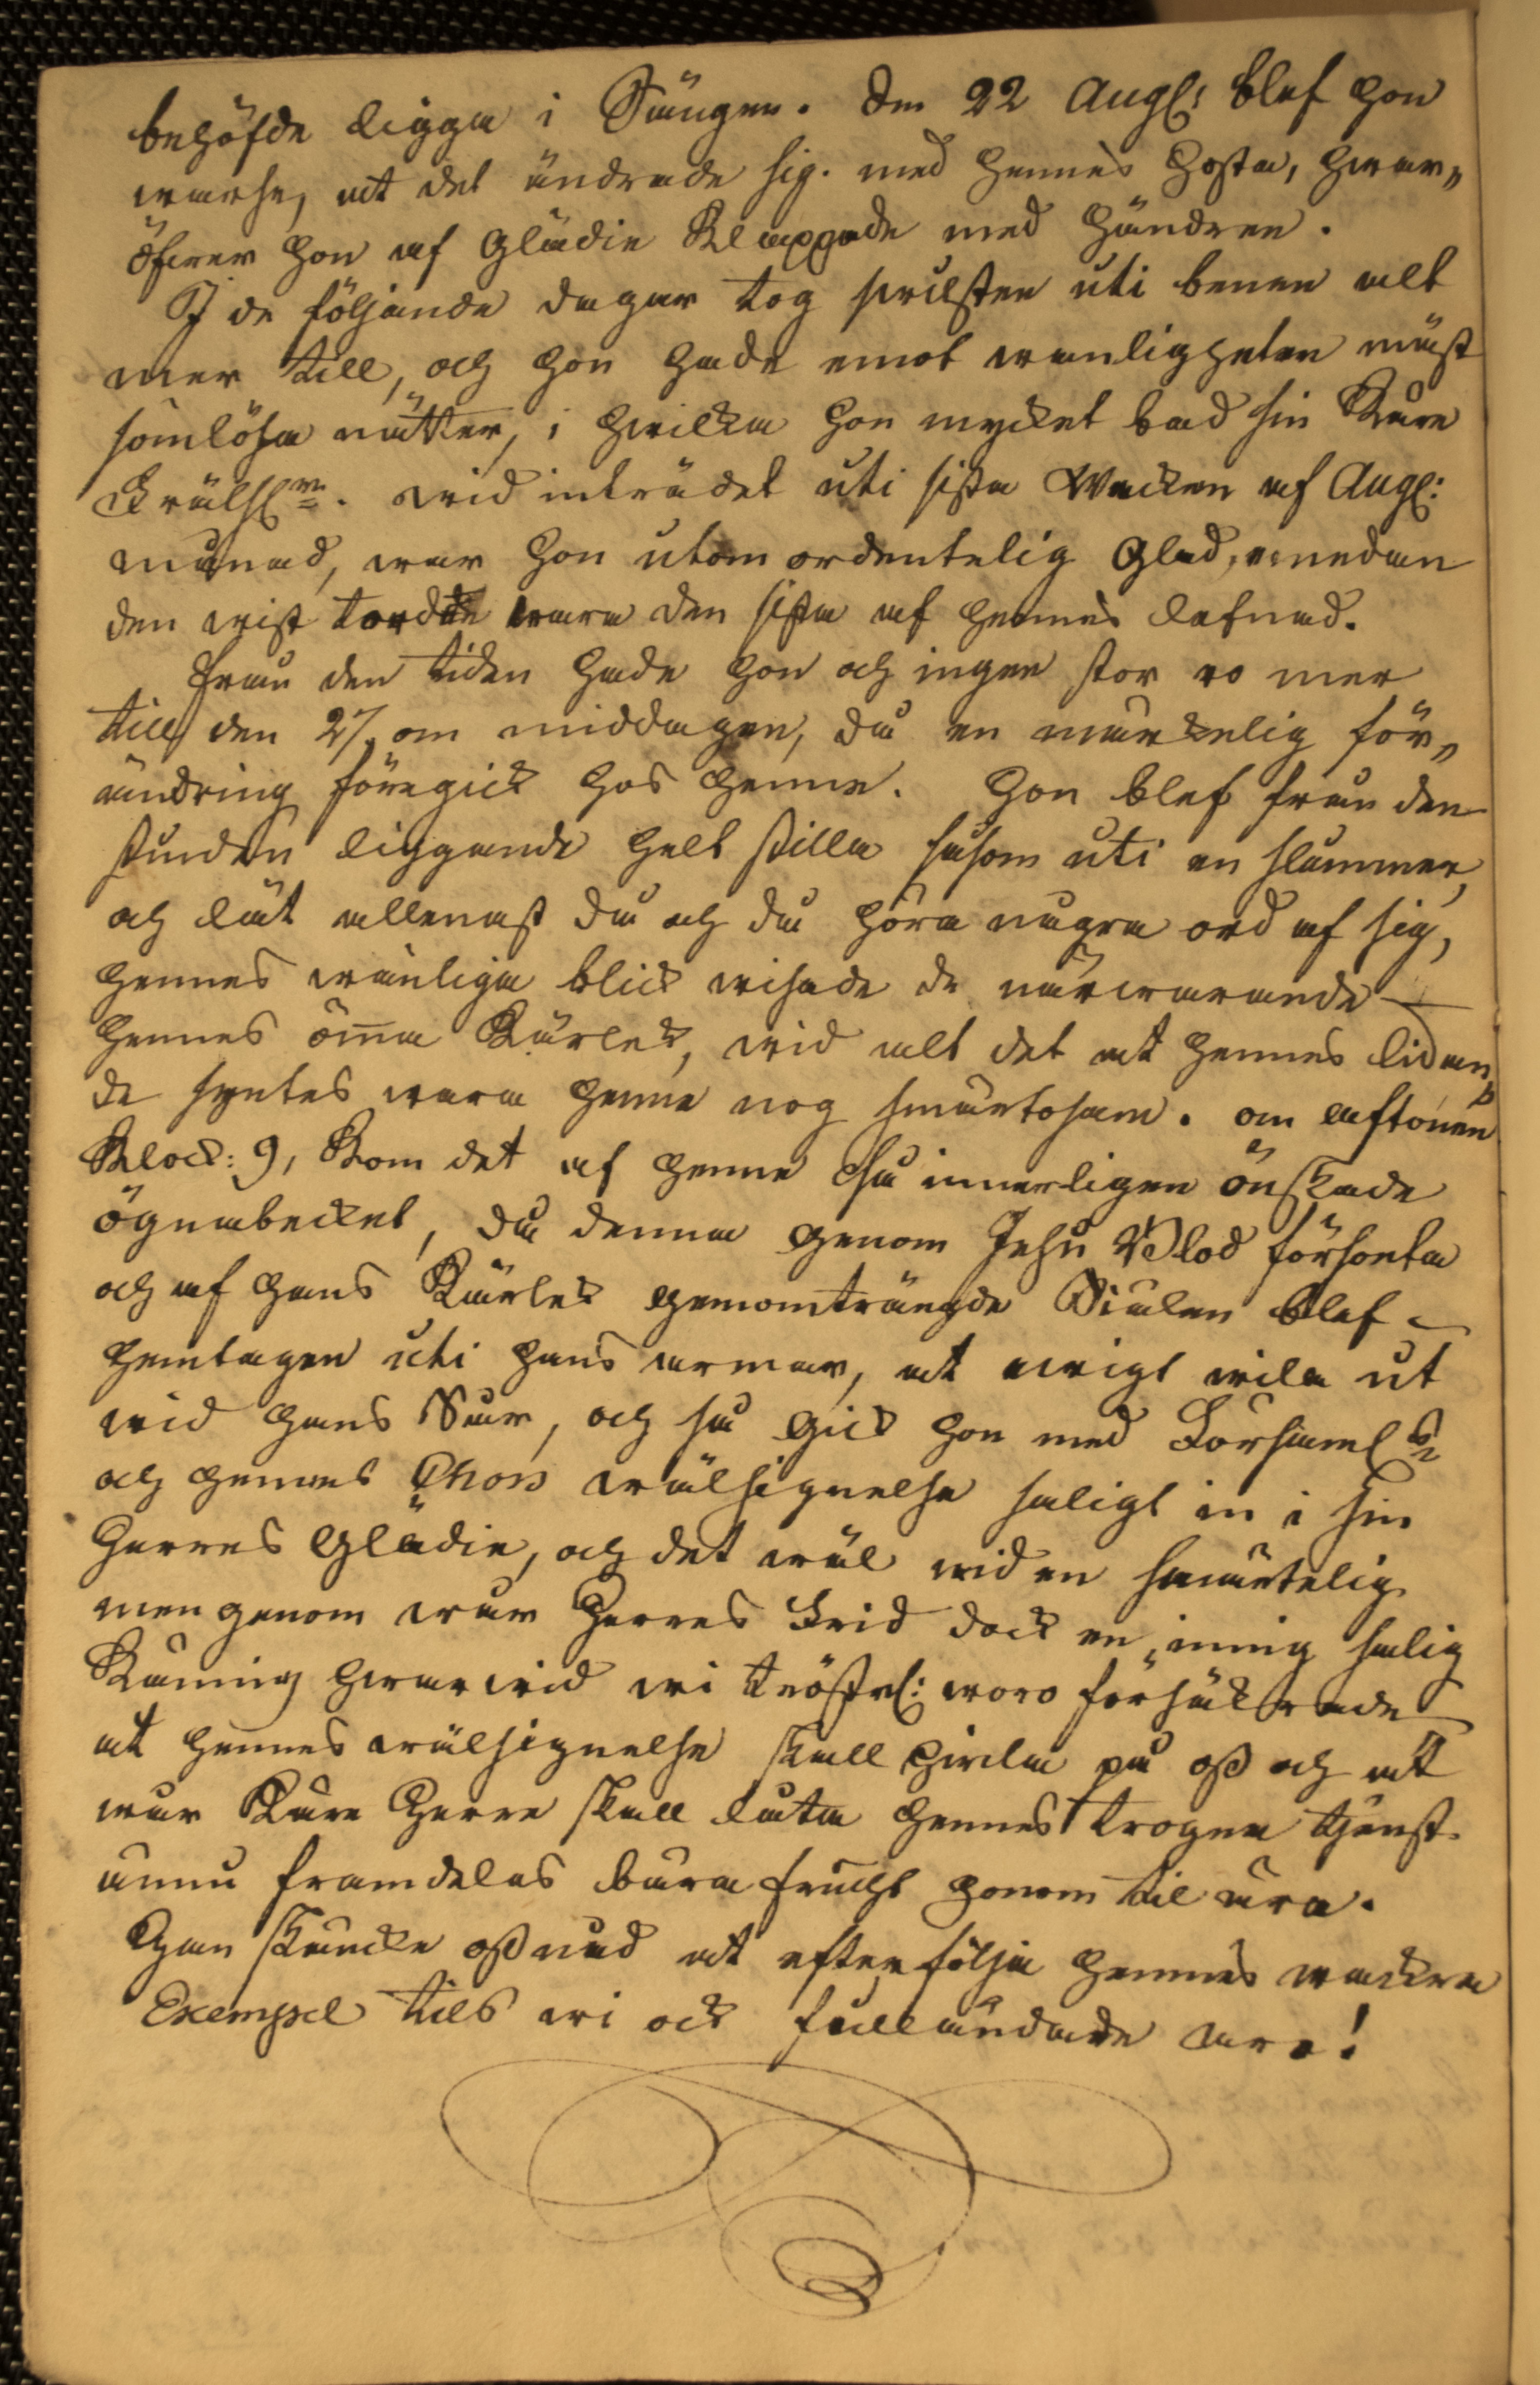 behöfde ligga i Sängen. Den 22 Aug: blef hon
warse, at det ändrade sig med hennes Hosta, hwar„
öfwer hon af Glädie Klappade med händren.
I de följande dagar tog swulsten uti benen alt
mer till, och hon hade emot wanligheten mäst
sömlösa nätter, i hwilka hon mycket bad sin Käre
Frälsrn. wid inträdet uti sista Weckan af Aug:
månad, war hon utom ordentelig Glad, emedan
den wist tordde wara den sista af hennes lefnad.
från den tiden hade hon och ingen stor ro mer
till den 27. om middagen, då en märkelig för„
ändring föregick hos henne. Hon blef från den
stunden liggande helt stilla såsom uti en slummer,
och lät allenast då och då höra några ord af sig,
hennes wänliga blick wisade de närwarande
hennes öm̅a Kärlek, wid alt det at hennes lidan„
de syntes wara henne nog smärtosam. om aftonen
Klock: 9, Kom det af henne så innerligen önskade
ögnabecket, då denna genom Jesu Blod försonta
och af hans Kärlek genomträngde Siälen blef
hemtagen uti hans armar, at ewigt wila ut
wid hans Sår, och så gick hon med Församl:s
och hennes Chors wälsignelse saligt in i sin
Herres Glädie, och det wäl wid en smärtelig
men genom wår Herres Frid dock en innig salig
Känning hwarwid wi tröstel: woro försäkrade
at hennes wälsignelse skall hwila på oss och at
wår Käre Herre skall låta hennes trogna tjenst
ännu framdeles bära frucht honom til ära.
Han skäncke oss nåd at efterfölja hennes wackra
Exempel tils wi ock fulländade äro!